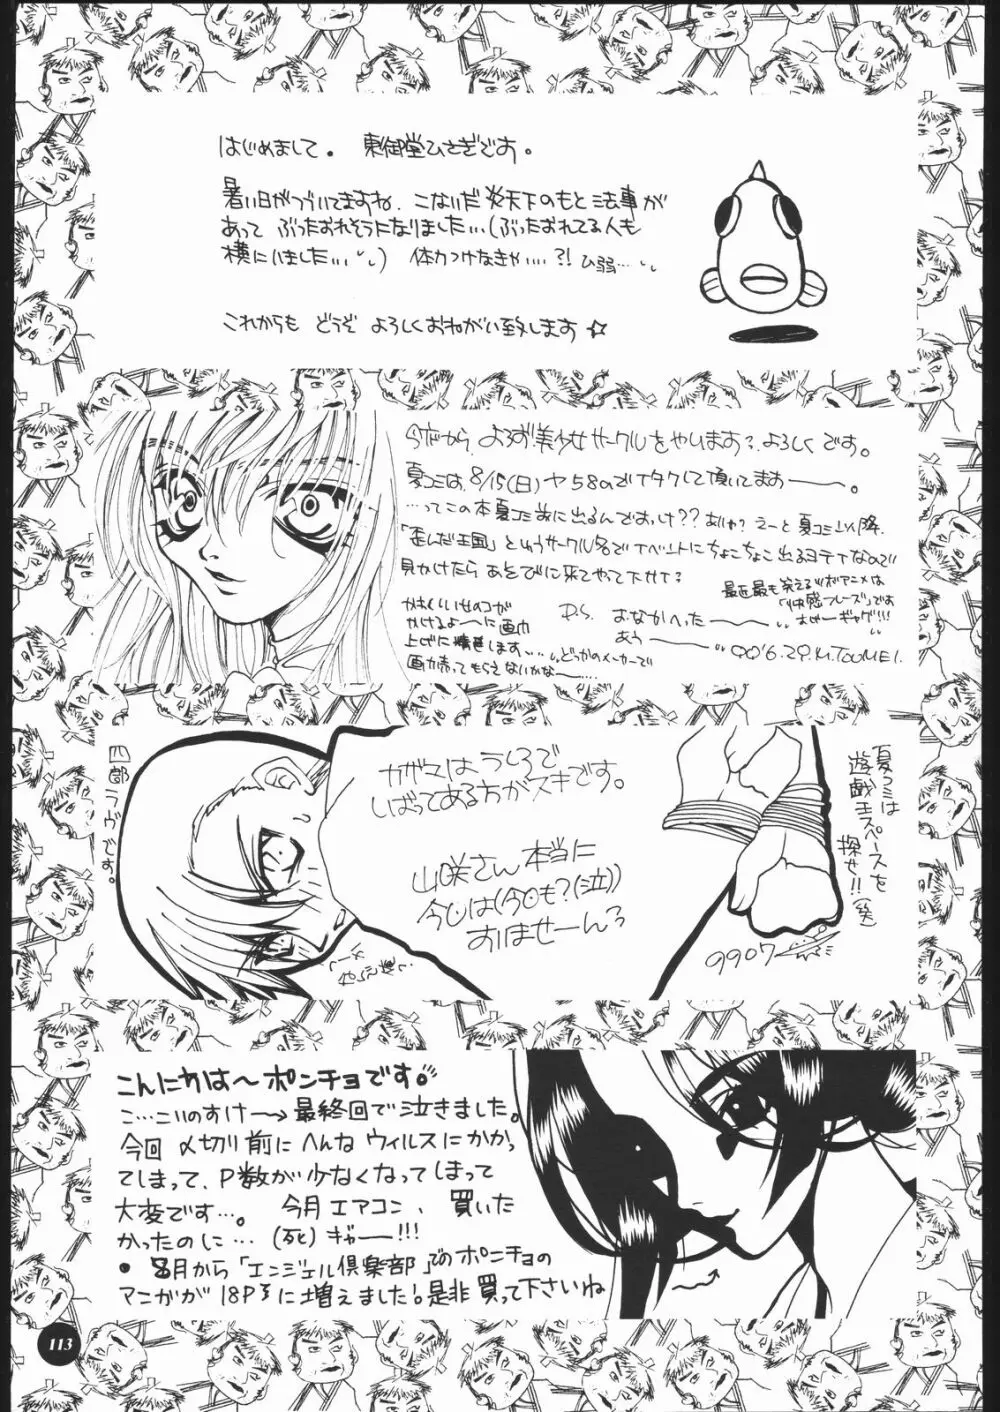 はじめまして。 東御堂ひさぎです。
暑い日がつづいてますね、こないだ炎天下のもと法事が
あって ぶったおれそうになりました…(ぶったおれてる人も
横にいました…) 体力つけなきゃ…?! ひ弱…
これからも どうぞ よろしくおねがい致します☆
今度から、よろず美少女サークルをやります?よろしくです。
夏コミは、8/15(日)ヤ58のbでイタクして頂いてますーー。
…ってこの本夏コミ前に出るんですっけ??ありゃ?えーと夏コミ以降、
「歪んだ王国」というサークル名でイベントにちょこちょこ出るヨテイなので
見かけたら あそびに来てやって下サイ?
最近最も笑えるツボアニメは
「快感フレーズ」です
かわいい女のコが
かけるよーーに画力
上げに精進します……
どっかのメーカーで
画力売ってもらえないかなー…
P.S. おなかへったーーー
あうーーー
99'6.29.M.TOOMEI.
四郎ラヴです。
カガミはうしろで
しばってある方がスキです。
山咲さん本当に
今回は(今回も?(泣))
すいませーん
夏コミは
遊戯王スペースを
探せ!!(笑)
9907
こんにちは〜ポンチョです。
こ…こいのすけ→最終回で泣きました。
今回〆切り前にへんなウィルスにかかっ
てしまって、P数が少なくなってしまって
大変です…。 今月エアコン、買いた
かったのに…(死)ギャー!!!
• 8月から「エンジェル倶楽部」でのポンチョの
マンガが18Pに増えました!是非買って下さいね
113